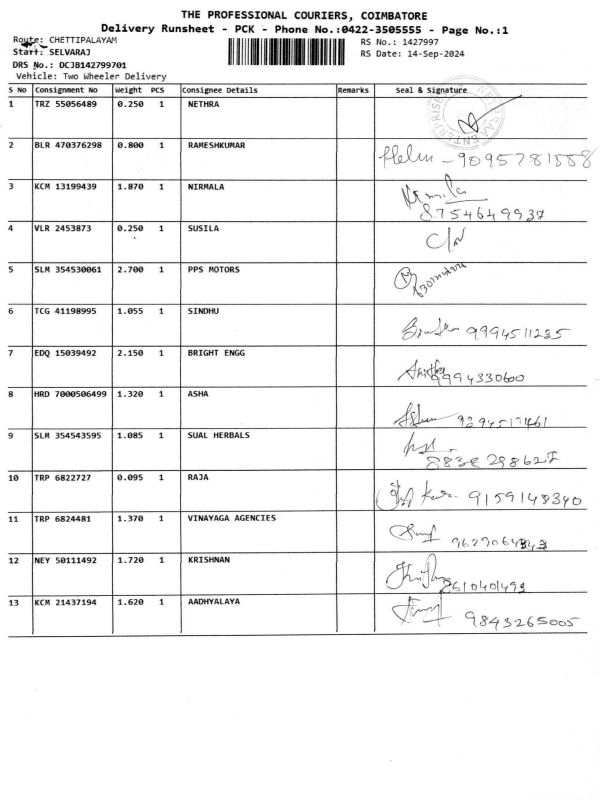 THE PROFESSIONAL COURIERS, COIMBATORE
Delivery Runsheet - PCK - Phone No.:0422-3505555 - Page No.:1
Route: CHETTIPALAYAM
Staff: SELVARAJ
DRS No.: DCJB142799701
Vehicle: Two Wheeler Delivery
RS No.: 1427997
RS Date: 14-Sep-2024
S No Consignment No Weight PCS Consignee Details Remarks Seal & Signature
1 TRZ 55056489 0.250 1 NETHRA
2 BLR 470376298 0.800 1 RAMESHKUMAR
3 KCM 13199439 1.870 1 NIRMALA 8754649937
4 VLR 2453873 0.250 1 SUSILA
5 SLM 354530061 2.700 1 PPS MOTORS
6 TCG 41198995 1.055 1 SINDHU 9994511235
7 EDQ 15039492 2.150 1 BRIGHT ENGG 9994330600
8 HRD 7000506499 1.320 1 ASHA
9 SLM 354543595 1.085 1 SUAL HERBALS
10 TRP 6822727 0.095 1 RAJA 9159148340
11 TRP 6824481 1.370 1 VINAYAGA AGENCIES
12 NEY 50111492 1.720 1 KRISHNAN
13 KCM 21437194 1.620 1 AADHYALAYA 9843265005